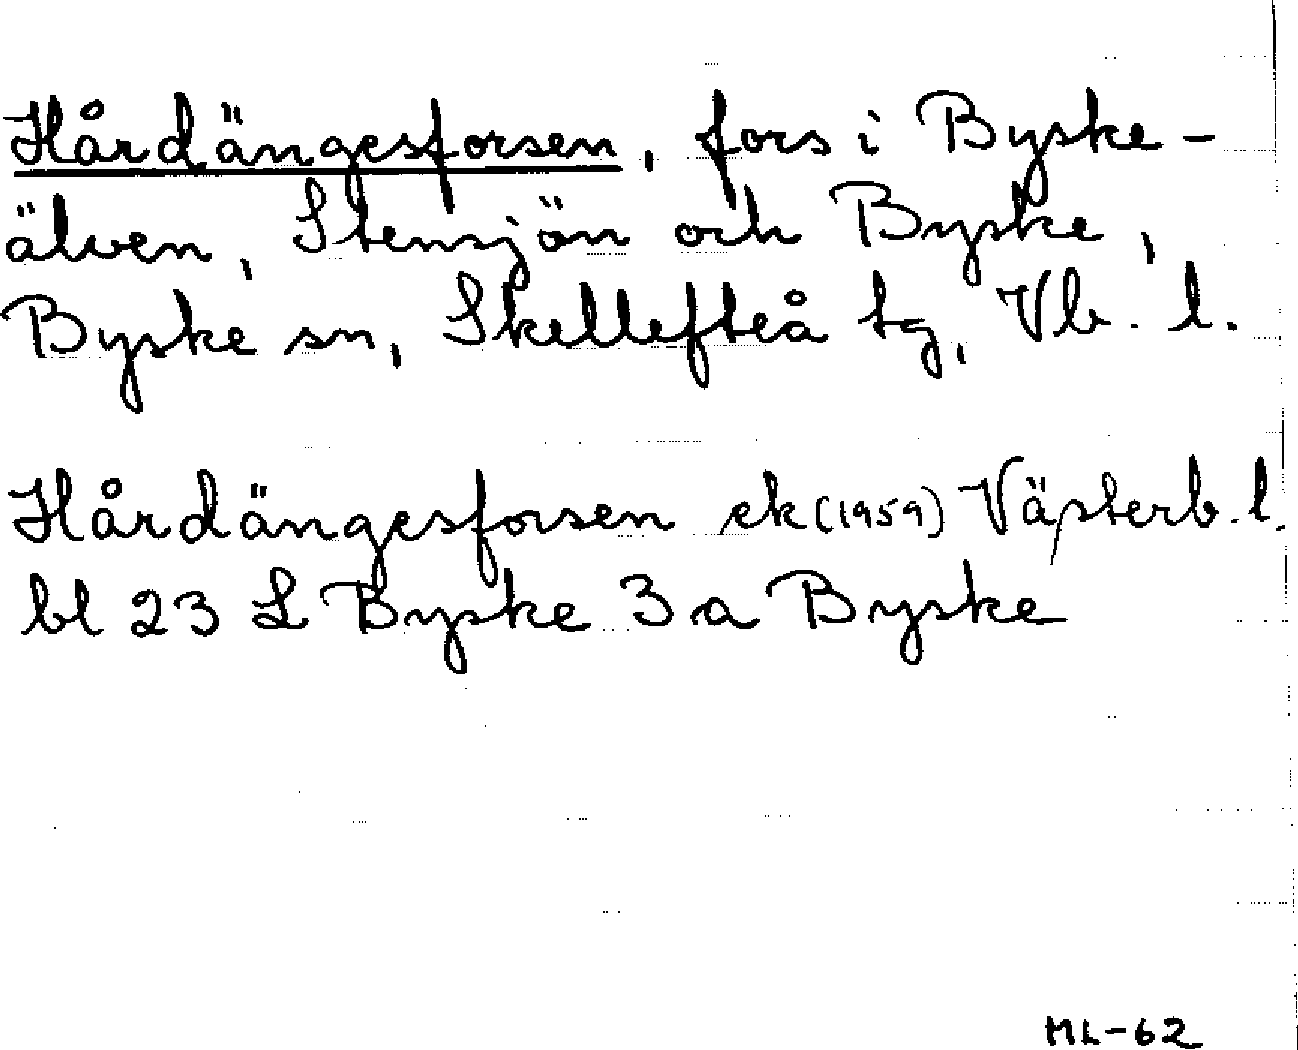 Hårdängesforsen, fors i Byske-
älven, Stensjön och Byske,
Byske sn, Skellefteå tg, Vb. l.
Hårdängesforsen ek (1959) Västerb. l.
bl 23 L Byske 3 a Byske
ML-62